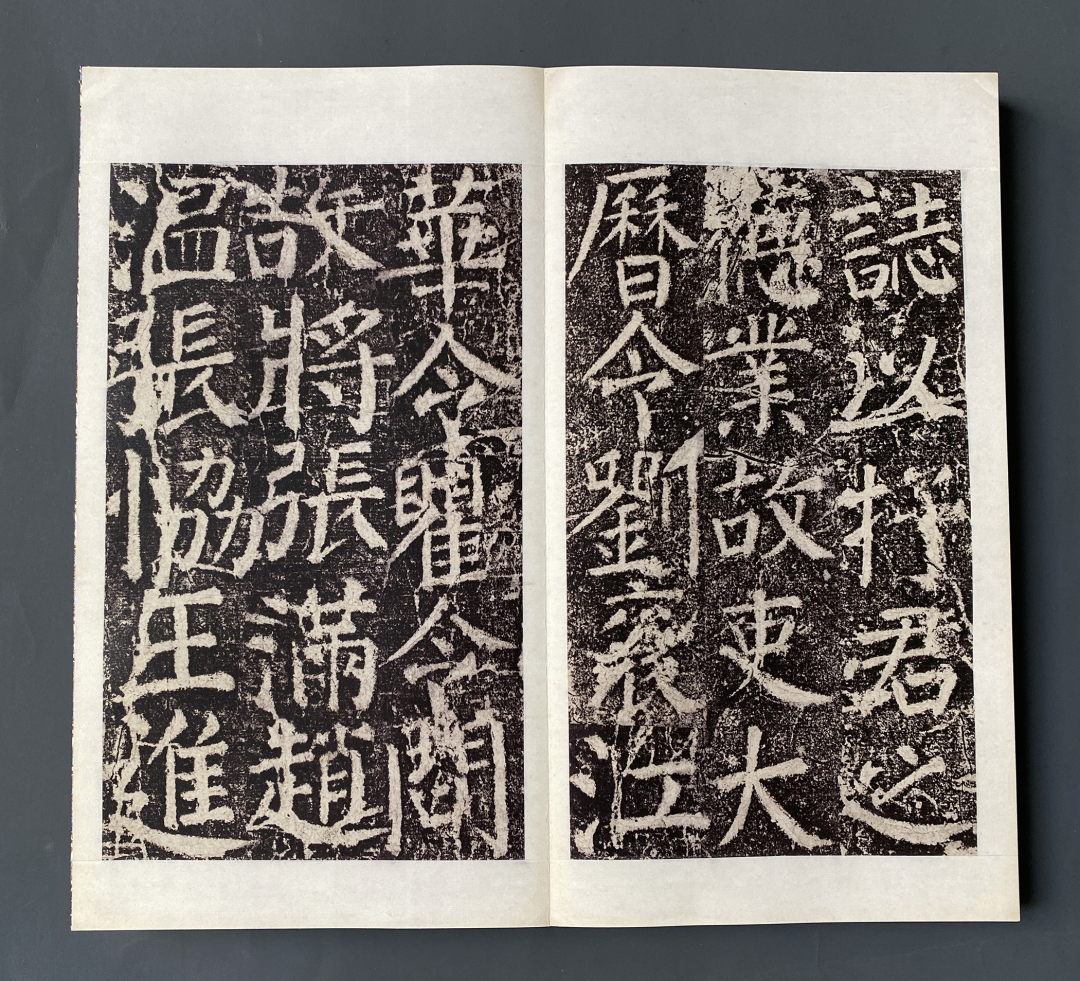 誌以抒君之
德業故吏大
曆令劉袞江
華令瞿令問
故將張滿趙
温張協王進